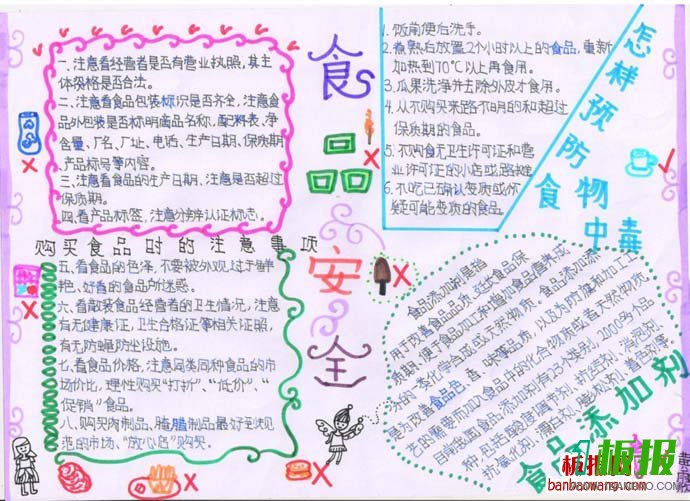 一、注意看经营者是否有营业执照,其主
体资格是否合法。
二、注意看食品包装标识是否齐全,注意食
品外包装是否标明商品名称、配料表、净
含量、厂名、厂址、电话、生产日期、保质期
产品标号等内容。
三、注意看食品的生产日期,注意是否超过
保质期。
四、看产品标签,注意分辨认证标志。
购买食品时的注意事项
五、看食品的色泽,不要被外观过于鲜
艳、好看的食品所迷惑。
六、看散装食品经营者的卫生情况,注意
有无健康证,卫生合格证等相关证照,
有无防蝇防尘设施。
七、看食品价格,注意同类同种食品的市
场价比,理性购买“打折”、“低价”、“
促销”食品。
八、购买肉制品、腌腊制品最好到规
范的市场、“放心店”购买。
食品安全
1.饭前便后洗手。
2.煮熟后放置2个小时以上的食品,重新
加热到70℃以上再食用。
3.瓜果洗净并去除外皮才食用。
4.从不购买来路不明的和超过
保质期的食品。
5.不购食无卫生许可证和营
业许可证的小店或路摊
6.不吃已确认变质或怀
疑可能变质的食品。
怎样预防食物中毒
食品添加剂是指
用于改善食品品质、延长食品保
质期、便于食品加工和增加食品营养成
分的一类化学合成或天然物质。食品添加剂
是为改善食品色、香、味等品质,以及为防腐和加工工
艺的需要而加入食品中的化合物质或者天然物质
目前我国食品添加剂有23个类别,2000多个品
种,包括酸度调节剂、抗结剂、消泡剂、
抗氧化剂、漂白剂、膨松剂、着色剂等
食品添加剂
板报网
banbaowang.com
板报